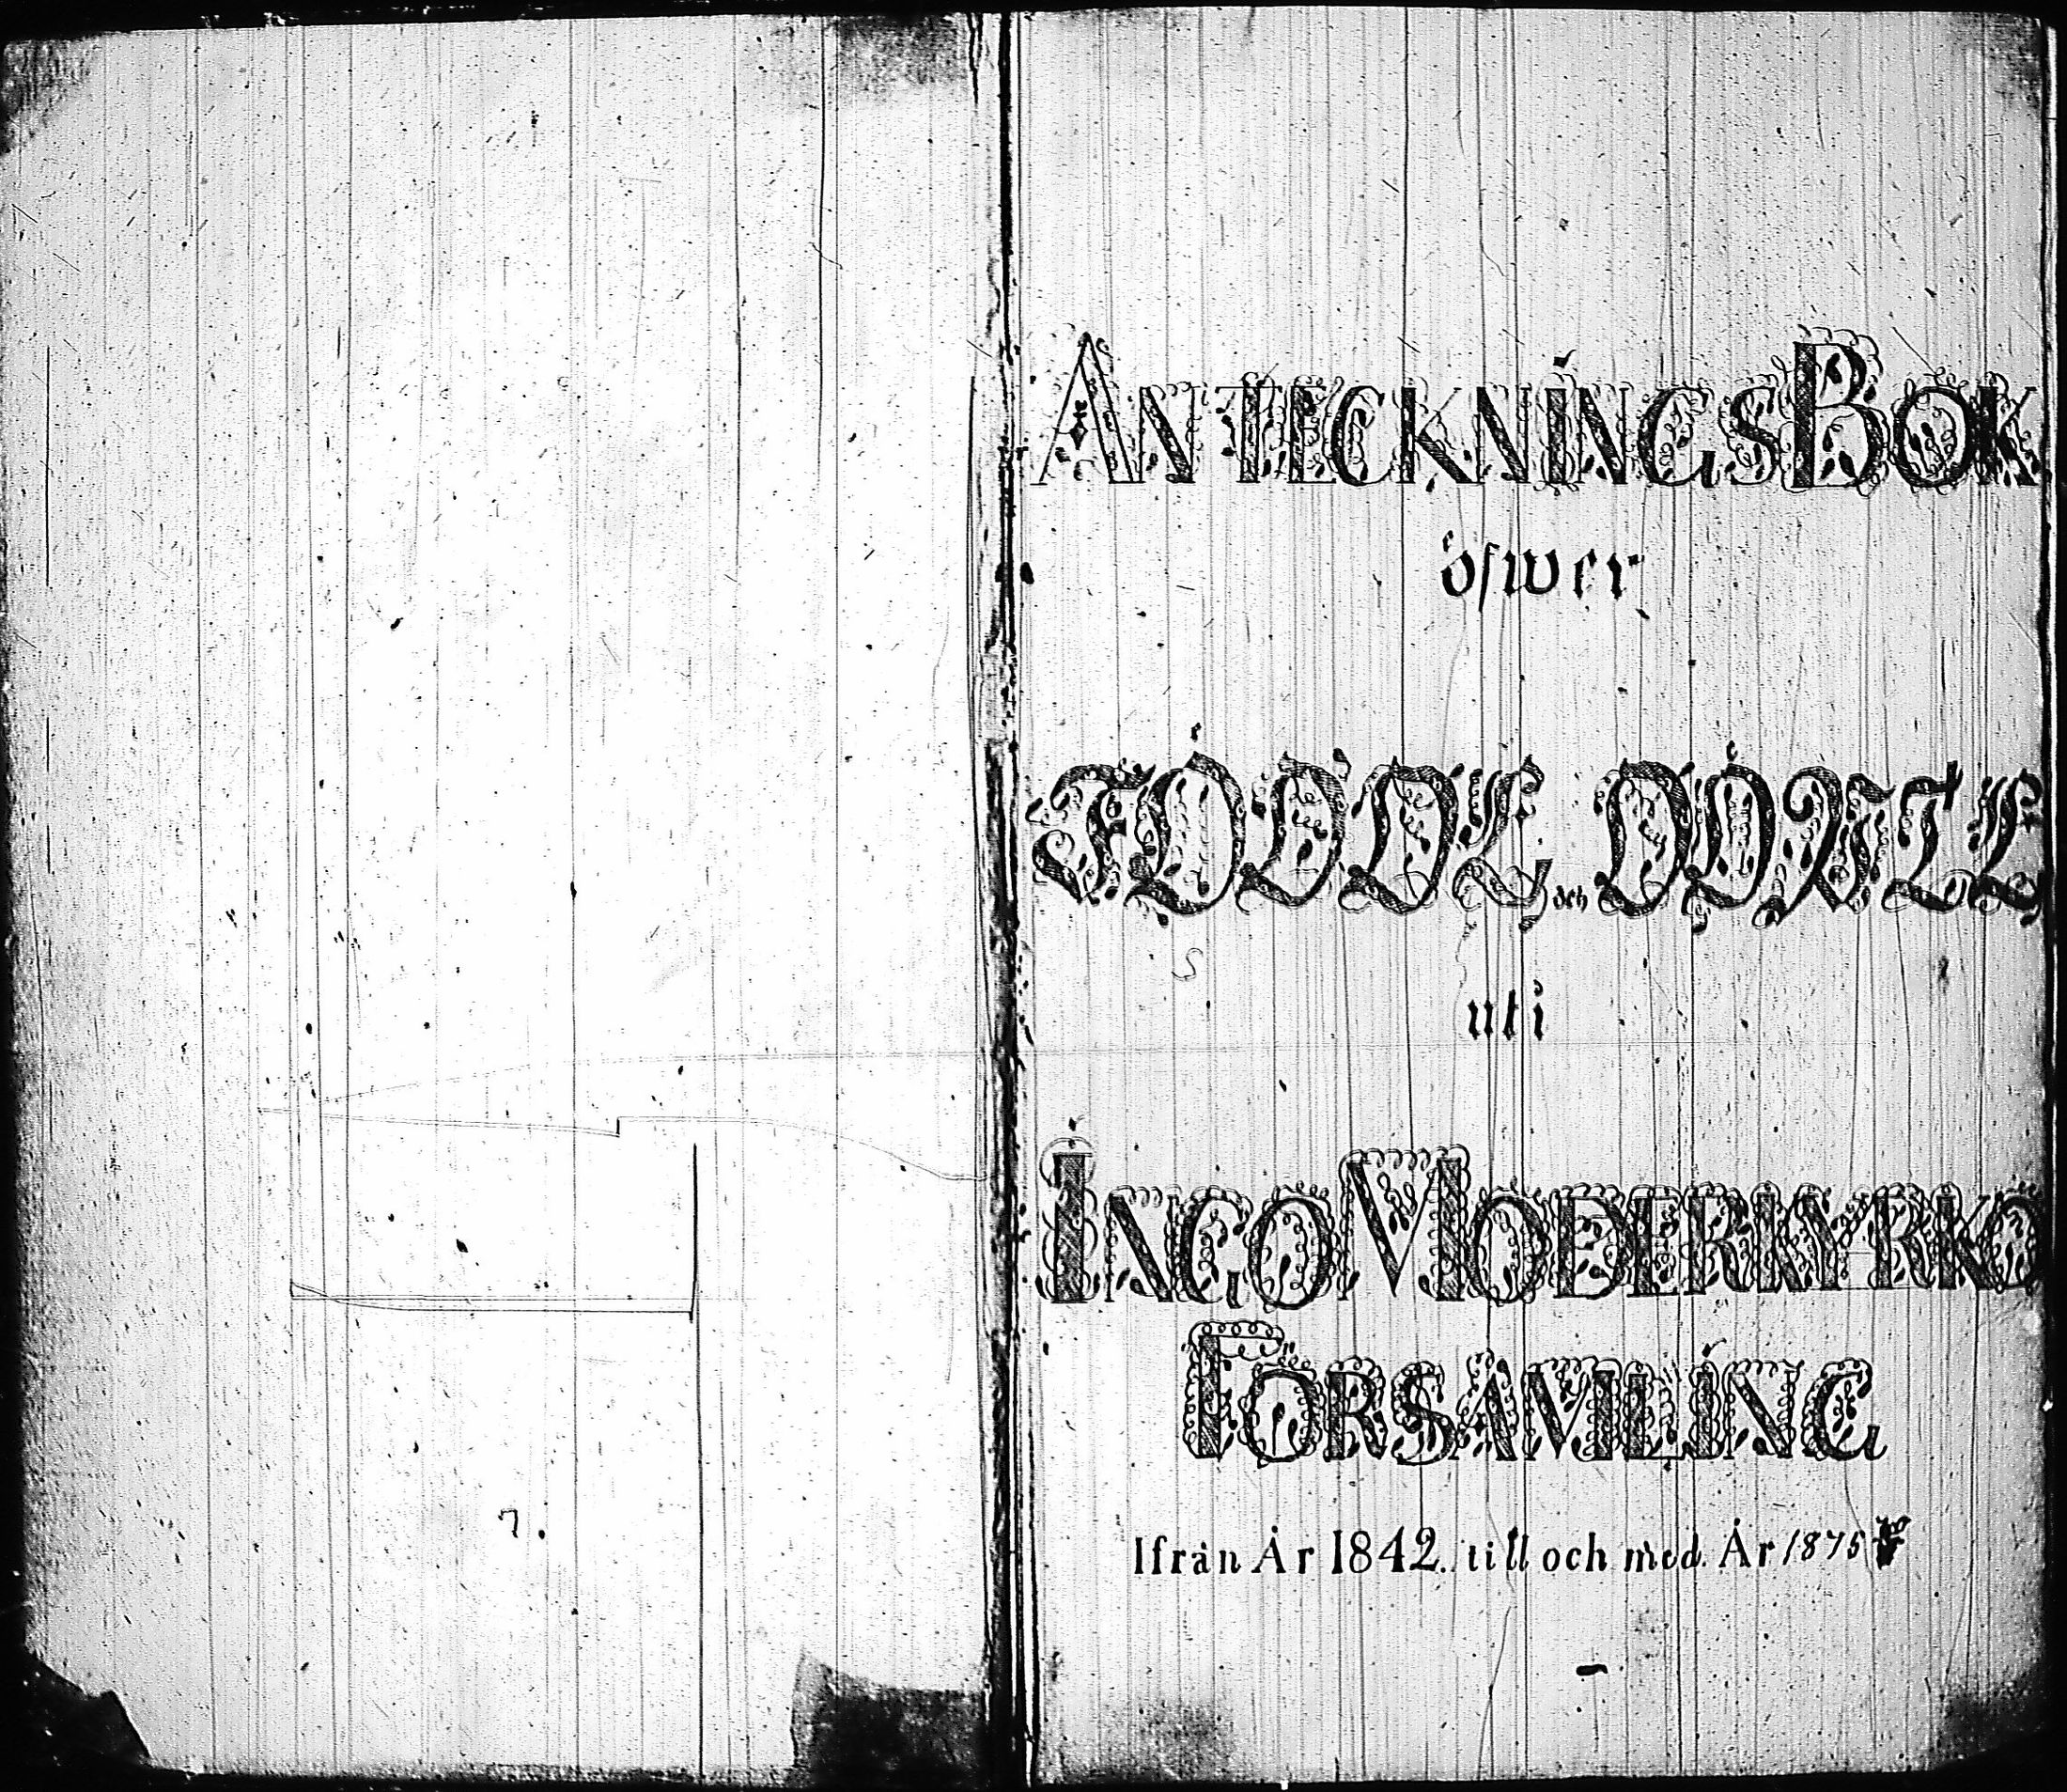 7.
ANTECKNINGSBOK
öfwer
FÖDDE och DÖPTE
uti
INGO MODERKYRKO
FÖRSAMLING
Ifrån År 1842. till och med År 1875